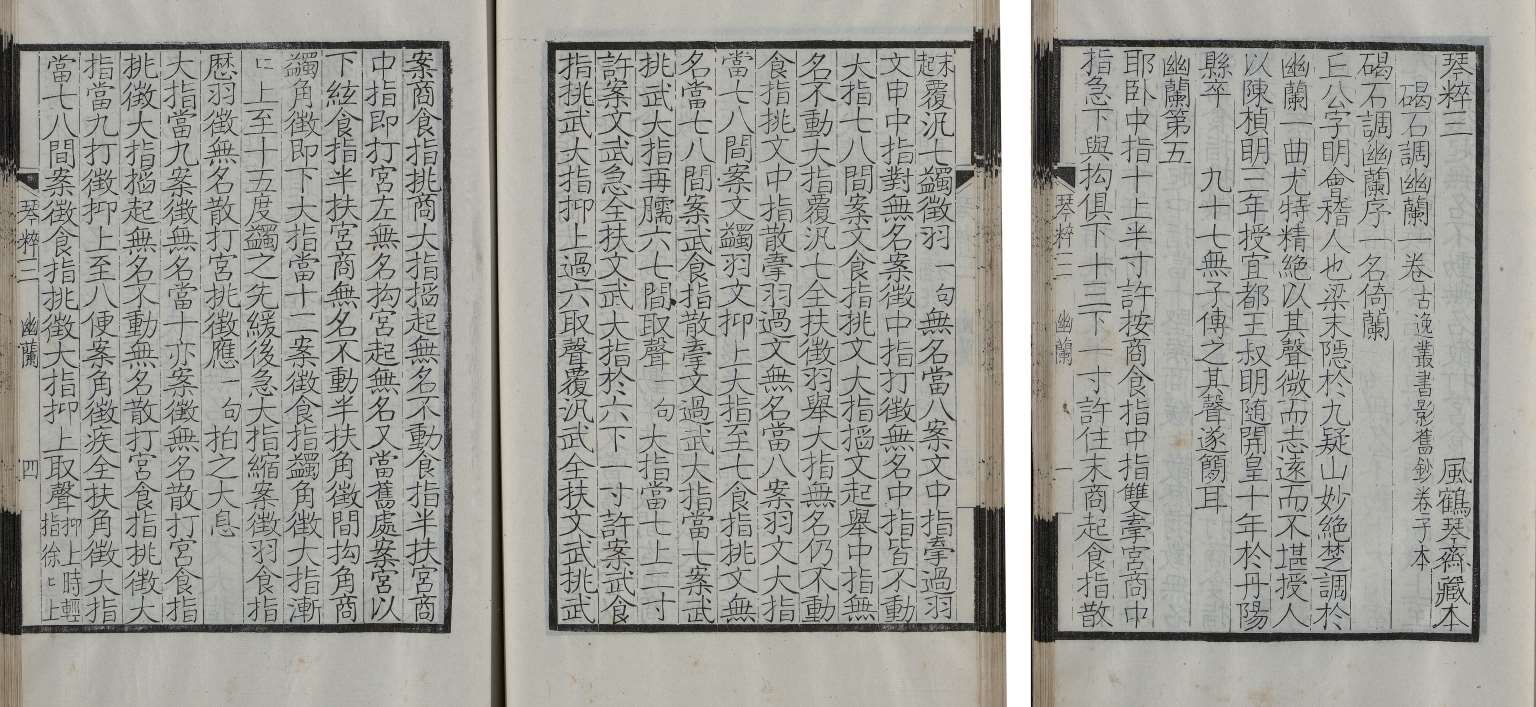 琴粹三 風鶴琴齋藏本
碣石調幽蘭一卷 古逸叢書影舊鈔卷子本
碣石調幽蘭序一名倚蘭
丘公字眀會稽人也梁末隱於九疑山妙絕楚調於
幽蘭一曲尤特精絕以其聲微而志遠而不堪授人
以陳楨眀三年授宜都王叔眀随開皇十年於丹陽
縣卒 九十七無子傳之其聲遂簡耳
幽蘭第五
耶卧中指十上半寸許按商食指中指雙牽宮商中
指急下與抅俱下十三下一寸許住末商起食指散
琴粹三 幽蘭 一
末起覆汎七蠲徵羽一句無名當八案文中指牽過羽
文申中指對無名案徵中指打徵無名中指皆不動
大指七八間案文食指挑文大指搯文起舉中指無
名不動大指覆汎七全扶徵羽舉大指無名仍不動
食指挑文中指散牽羽過文無名當八案羽文大指
當七八間案文蠲羽文抑上大指至七食指挑文無
名當七八間案武食指散牽文過武大指當七案武
挑武大指再臑六七間取聲一句大指當七上二寸
許案文武急全扶文武大指於六下一寸許案武食
指挑武大指抑上過六取聲覆汎武全扶文武挑武
案商食指挑商大指搯起無名不動食指半扶宮商
中指即打宮左無名抅宮起無名又當舊處案宮以
下絃食指半扶宮商無名不動半扶角徵間抅角商
蠲角徵即下大指當十二案徵食指蠲角徵大指漸
〻上至十五度蠲之先緩後急大指縮案徵羽食指
歷羽徵無名散打宮挑徵應一句拍之大息
大指當九案徵無名當十亦案徵無名散打宮食指
挑徵大指搯起無名不動無名散打宮食指挑徵大
指當九打徵抑上至八便案角徵疾全扶角徵大指
當七八間案徵食指挑徵大指抑上取聲 抑上時輕指徐〻上
琴粹二 幽蘭 四